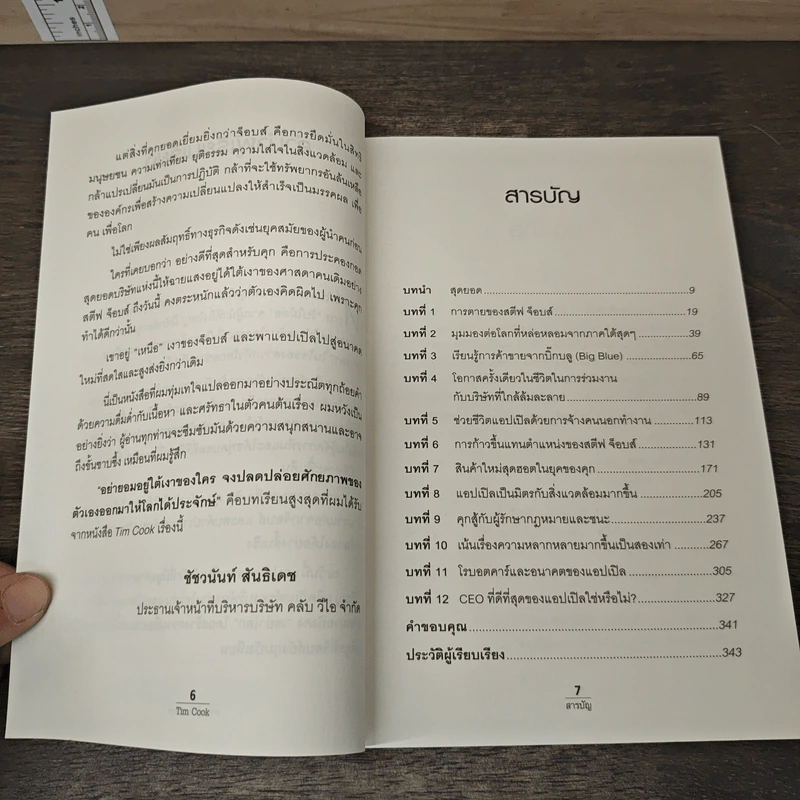 แต่สิ่งที่คุกยอดเยี่ยมยิ่งกว่าจ็อบส์ คือการยึดมั่นในสิทธิ
มนุษยชน ความเท่าเทียม ยุติธรรม ความใส่ใจในสิ่งแวดล้อม และ
กล้าแปรเปลี่ยนมันเป็นการปฏิบัติ กล้าที่จะใช้ทรัพยากรอันล้นเหลือ
ขององค์กรเพื่อสร้างความเปลี่ยนแปลงให้สำเร็จเป็นมรรคผล เพื่อ
คน เพื่อโลก
ไม่ใช่เพียงผลสัมฤทธิ์ทางธุรกิจดังเช่นยุคสมัยของผู้นำคนก่อน
ใครที่เคยบอกว่า อย่างดีที่สุดสำหรับคุก คือการประคองกอด
สุดยอดบริษัทแห่งนี้ให้ฉายแสงอยู่ได้ใต้เงาของศาสดาคนเดิมอย่าง
สตีฟ จ็อบส์ ถึงวันนี้ คงตระหนักแล้วว่าตัวเองคิดผิดไป เพราะคุก
ทำได้ดีกว่านั้น
เขาอยู่ “เหนือ” เงาของจ็อบส์ และพาแอปเปิลไปสู่อนาคต
ใหม่ที่สดใสและสูงส่งยิ่งกว่าเดิม
นี่เป็นหนังสือที่ผมทุ่มเทใจแปลออกมาอย่างประณีตทุกถ้อยคำ
ด้วยความดื่มด่ำกับเนื้อหา และศรัทธาในตัวคนต้นเรื่อง ผมหวังเป็น
อย่างยิ่งว่า ผู้อ่านทุกท่านจะซึมซับมันด้วยความสนุกสนานและอาจ
ถึงขั้นซาบซึ้ง เหมือนที่ผมรู้สึก
“อย่ายอมอยู่ใต้เงาของใคร จงปลดปล่อยศักยภาพของ
ตัวเองออกมาให้โลกได้ประจักษ์” คือบทเรียนสูงสุดที่ผมได้รับ
จากหนังสือ Tim Cook เรื่องนี้
ชัชวนันท์ สันธิเดช
ประธานเจ้าหน้าที่บริหารบริษัท คลับ วีไอ จำกัด
6
Tim Cook
สารบัญ
บทนำ สุดยอด 9
บทที่ 1 การตายของสตีฟ จ็อบส์ 19
บทที่ 2 มุมมองต่อโลกที่หล่อหลอมจากภาคใต้สุดๆ 39
บทที่ 3 เรียนรู้การค้าขายจากบิ๊กบลู (Big Blue) 65
บทที่ 4 โอกาสครั้งเดียวในชีวิตในการร่วมงาน
กับบริษัทที่ใกล้ล้มละลาย 89
บทที่ 5 ช่วยชีวิตแอปเปิลด้วยการจ้างคนนอกทำงาน 113
บทที่ 6 การก้าวขึ้นแทนตำแหน่งของสตีฟ จ็อบส์ 131
บทที่ 7 สินค้าใหม่สุดฮอตในยุคของคุก 171
บทที่ 8 แอปเปิลเป็นมิตรกับสิ่งแวดล้อมมากขึ้น 205
บทที่ 9 คุกสู้กับผู้รักษากฎหมายและชนะ 237
บทที่ 10 เน้นเรื่องความหลากหลายมากขึ้นเป็นสองเท่า 267
บทที่ 11 โรบอตคาร์และอนาคตของแอปเปิล 305
บทที่ 12 CEO ที่ดีที่สุดของแอปเปิลใช่หรือไม่? 327
คำขอบคุณ 341
ประวัติผู้เรียบเรียง 343
7
สารบัญ